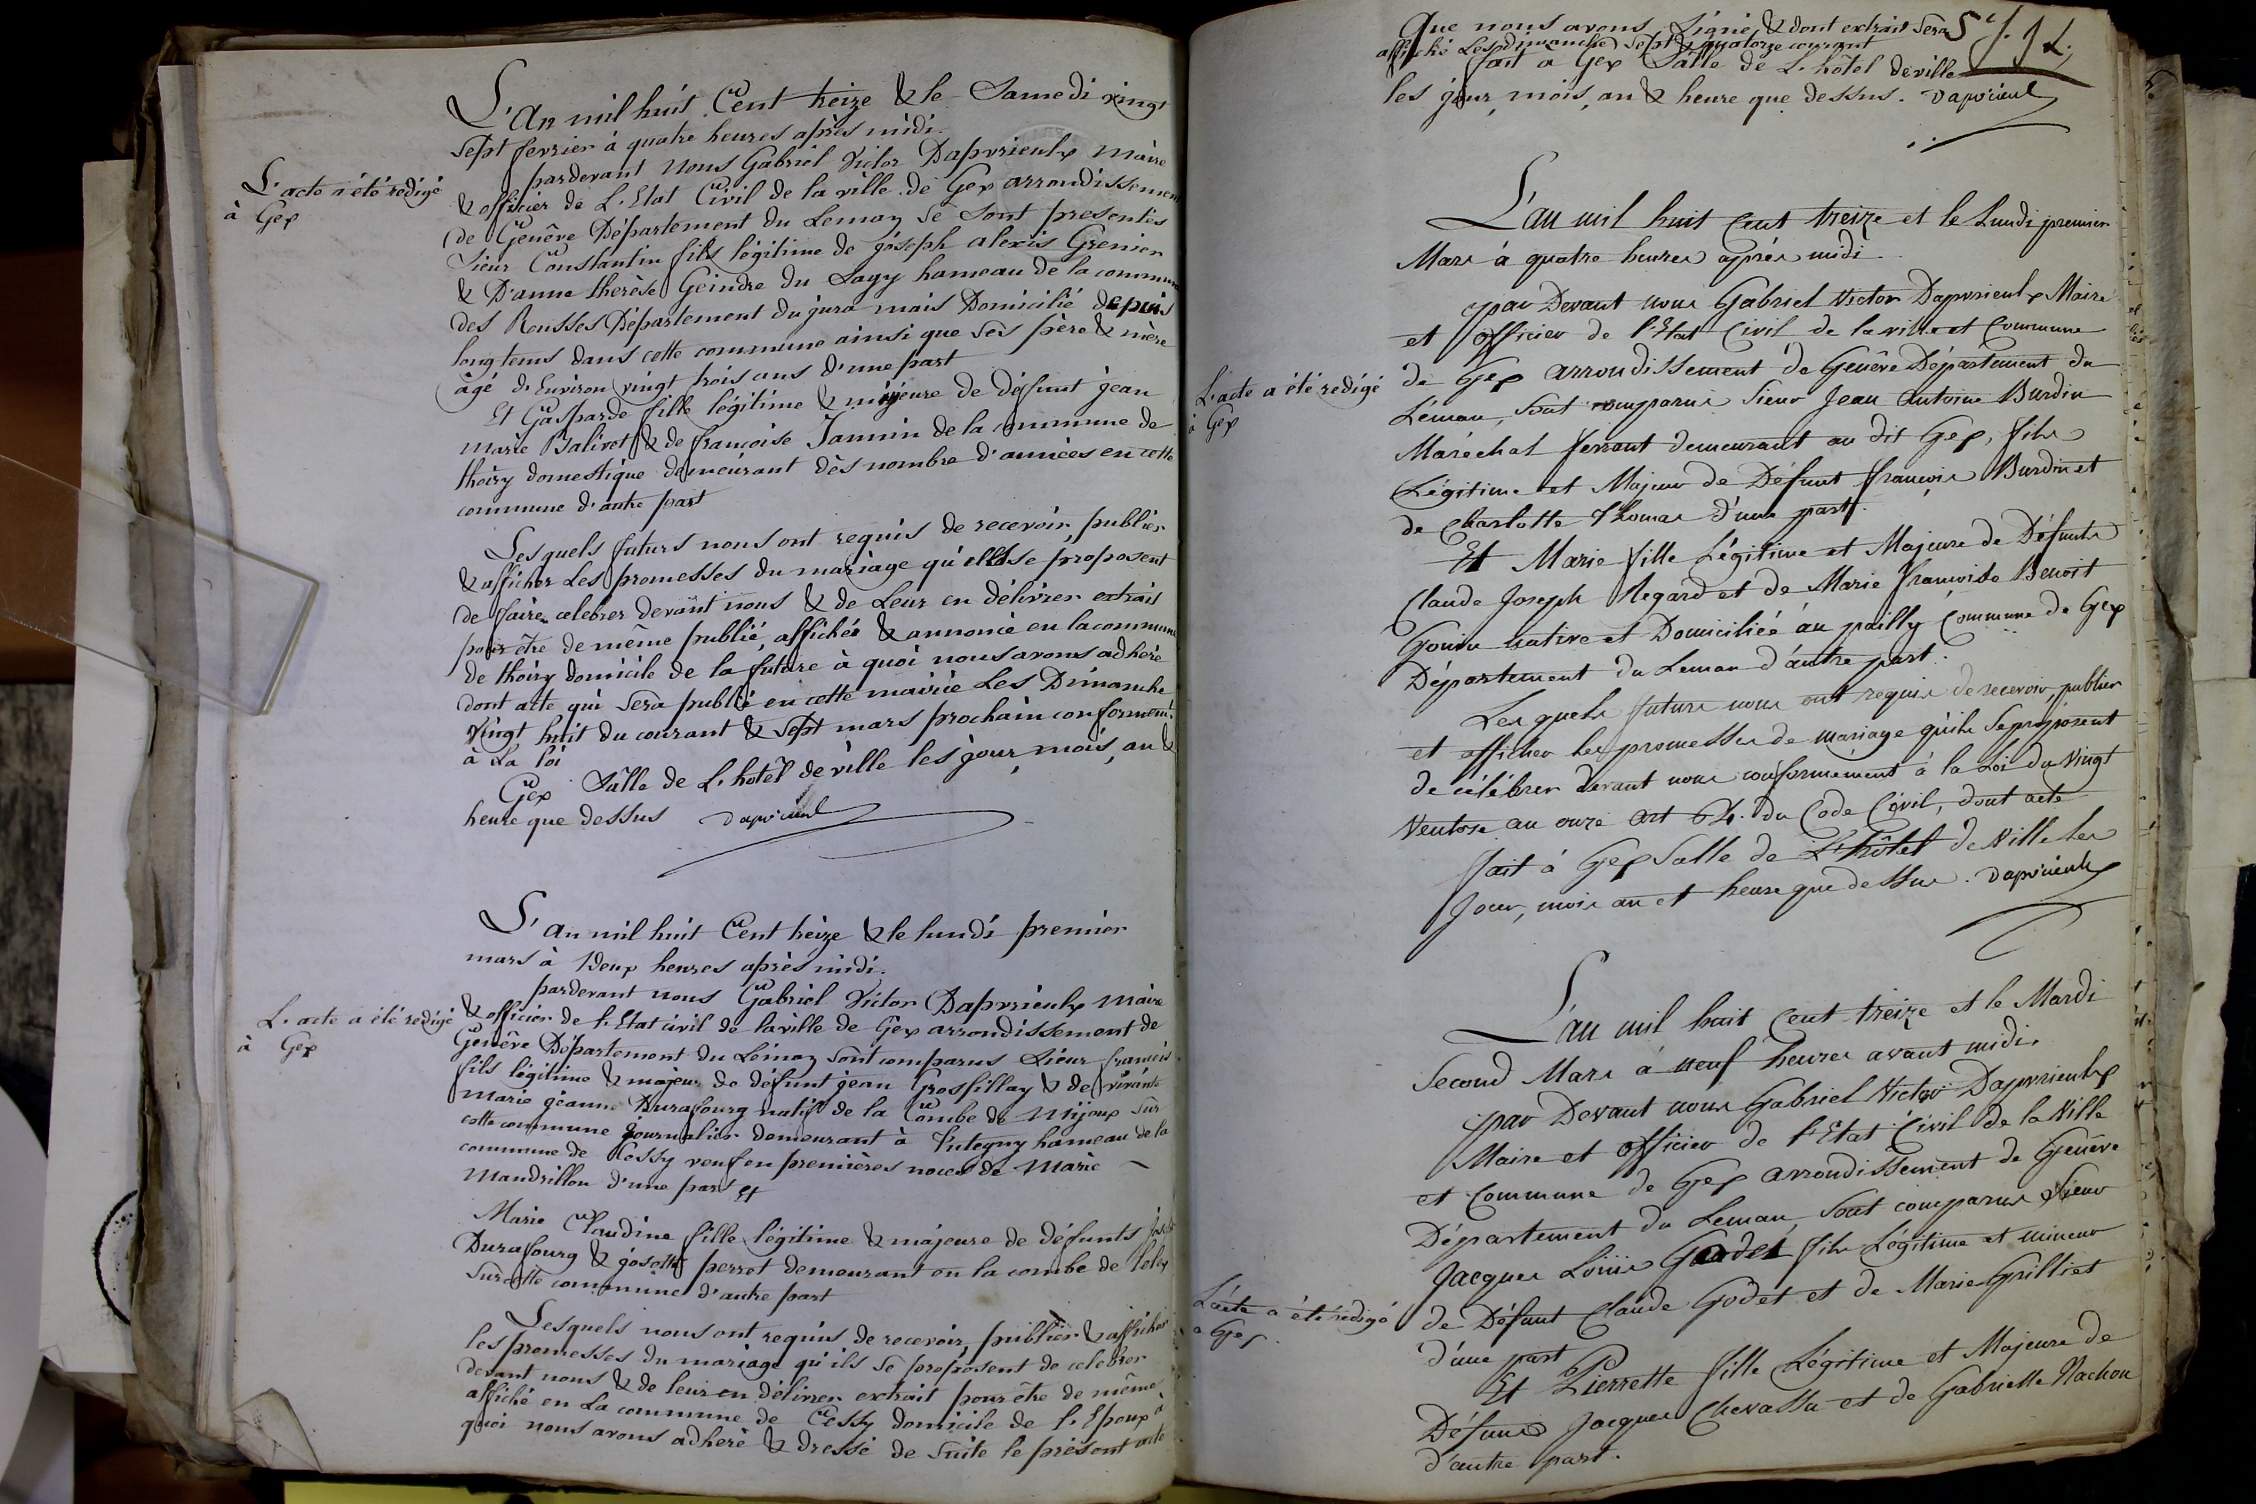 L'An mil huit Cent treize & le Samedi vingt
sept fevrier à quatre heures après midi.
pardevant nous Gabriel Victor Dapvrieulx maire
& officier de L'Etat Civil de la ville de Gex arrondissement
de Genêve Département du Leman se sont presentés
Sieur Constantin fils légitime de joseph alexis Grenier
& D'anne therèse Geindre du Lagy hameau de la commune
des Rousses Département du jura mais Domicilié depuis
longtems dans cette commune ainsi que ses père & mère
âgé d'Environ vingt trois ans d'une part
Et Gasparde fille légitime & majeure de défunt jean
marie Balivet & de françoise Jannin de la commune de
thoiry domestique demeurant dès nombre d'années en cette
commune d'autre part
Lesquels futurs nous ont requis de recevoir, publier
& afficher Les promesses du mariage qu'ils se proposent
de faire celebrer devant nous & de Leur en délivrer extrait
pour être de même publié, affiché & annoncé en la commune
de thoiry domicile de la future à quoi nous avons adhéré
dont acte qui sera publié en cette mairie Les Dimanche
vingt huit du courant & sept mars prochain conformemt.
à La loi
Gex Salle de L'hotel de ville les jour, mois, an &
heure que dessus Dapvrieulx
L'acte a été redigé
à Gex
L'an mil huit Cent treize & le lundi premier
mars à Deux heures après midi.
pardevant nous Gabriel Victor Dapvrieulx maire
& officier de l'Etat civil de la ville de Gex arrondissement de
Genêve Département du Léman sont comparus Sieur françois
fils légitime & majeur de défunt jean Grosfillay & de vivante
marie jeanne Durafourg natif de la Combe de Mijoux sur
cette commune journalier demeurant à hameau de la
commune de Cessy veuf en premières noces de Marie
Mandrillon d'une part Et
Marie Claudine fille légitime & majeure de défunts
Durafourg & josette perrot demeurant en la combe de lelex
sur cette commune d'autre part
Lesquels nous ont requis de recevoir, publier & afficher
les promesses du mariage qu'ils se proposent de celebrer
devant nous & de leur en délivrer extrait pour être de même
affiché en La commune de Cessy domicile de l'Epoux à
quoi nous avons adhéré & dressé de suite le présent acte
L'acte a été redigé
à Gex
Que nous avons Signé & dont extrait sera
affiché Les dimanches sept & quatorze courant
fait à Gex Salle de L'hôtel de ville
les jour, mois, an & heure que dessus. Dapvrieulx
L'an mil huit Cent treize et le Lundi premier
Mars à quatre heures après midi
par Devant nous Gabriel Victor Dapvrieulx Maire
et officier de l'Etat Civil de la ville et Commune
de Gex arrondissement de Genêve Département du
Léman, sont comparus Sieur Jean Antoine Burdin
Maréchal ferrant demeurant au dit Gex, fils
Légitime et Majeur de Défunt françois Burdin et
de Charlotte Thomas d'une part.
Et Marie fille Légitime et Majeure de Défunts
Claude Joseph Regard et de Marie françoise Benoit
Gonin native et Domiciliée au pailly Commune de Gex
Département du Leman d'autre part.
Lesquels futurs nous ont requis de recevoir, publier
et afficher les promesses de mariage qu'ils se proposent
de célébrer devant nous conformément à la Loi du Vingt
Ventose an onze art 64. du Code Civil, dont acte
fait à Gex Salle de L'hôtel de Ville les
Jour, mois an et heure que dessus. Dapvrieulx
L'acte a été redigé
à Gex
L'an mil huit Cent treize et le Mardi
second Mars à neuf heures avant midi.
par Devant nous Gabriel Victor Dapvrieulx
Maire et officier de l'Etat Civil de la Ville
et Commune de Gex arrondissement de Genêve
Département du Leman, sont comparus Sieur
Jacques Louis Godet fils Légitime et mineur
de Défunt Claude Godet et de Marie Grilliet
d'une part
Et Pierrette fille Légitime et Majeure de
Défunt Jacques Chevassu et de Gabrielle Nachon
d'autre part.
L'acte a été rédigé
à Gex.